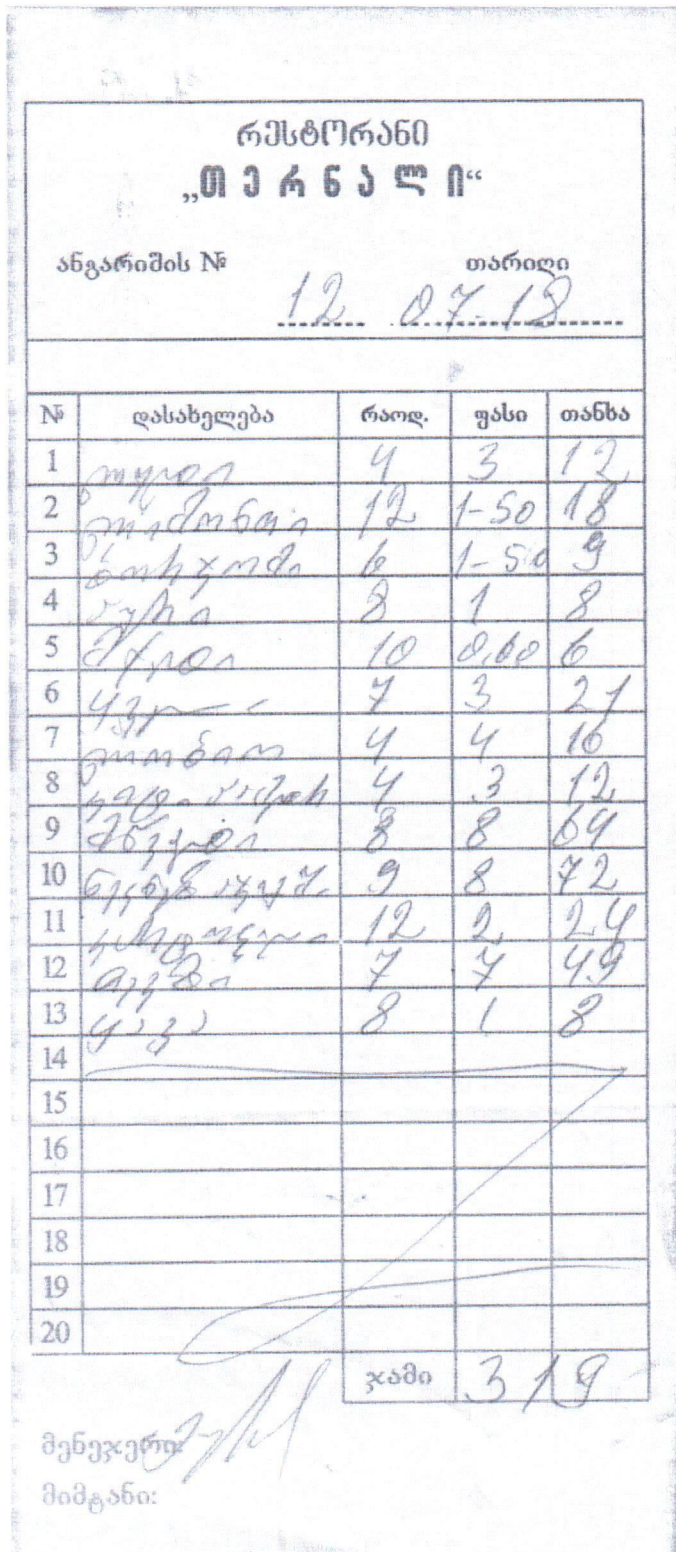 რესტორანი
„თერნალი“
ანგარიშის № თარიღი
12 07-18
№ დასახელება რაოდ. ფასი თანხა
1 4 3 12
2 ლიმონათი 12 1-50 18
3 ბორჯომი 6 1-50 9
4 პური 8 1 8
5 მჭადი 10 0,60 6
6 ყველი 7 3 21
7 ლობიო 4 4 16
8 4 3 12
9 მწვადი 8 8 64
10 9 8 72
11 კარტოფილი 12 2 24
12 თევზი 7 7 49
13 ყავა 8 1 8
14
15
16
17
18
19
20
ჯამი 319
მენეჯერი:
მიმტანი: